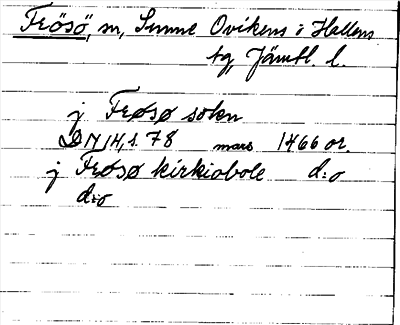 Frösö, m, Sunne Ovikens i Hallens
tg, Jämtl. l.
j Frøsø sokn
DN 14, s. 78 mars 1466 or.
j Frøsø kirkiobole d:o
d:o